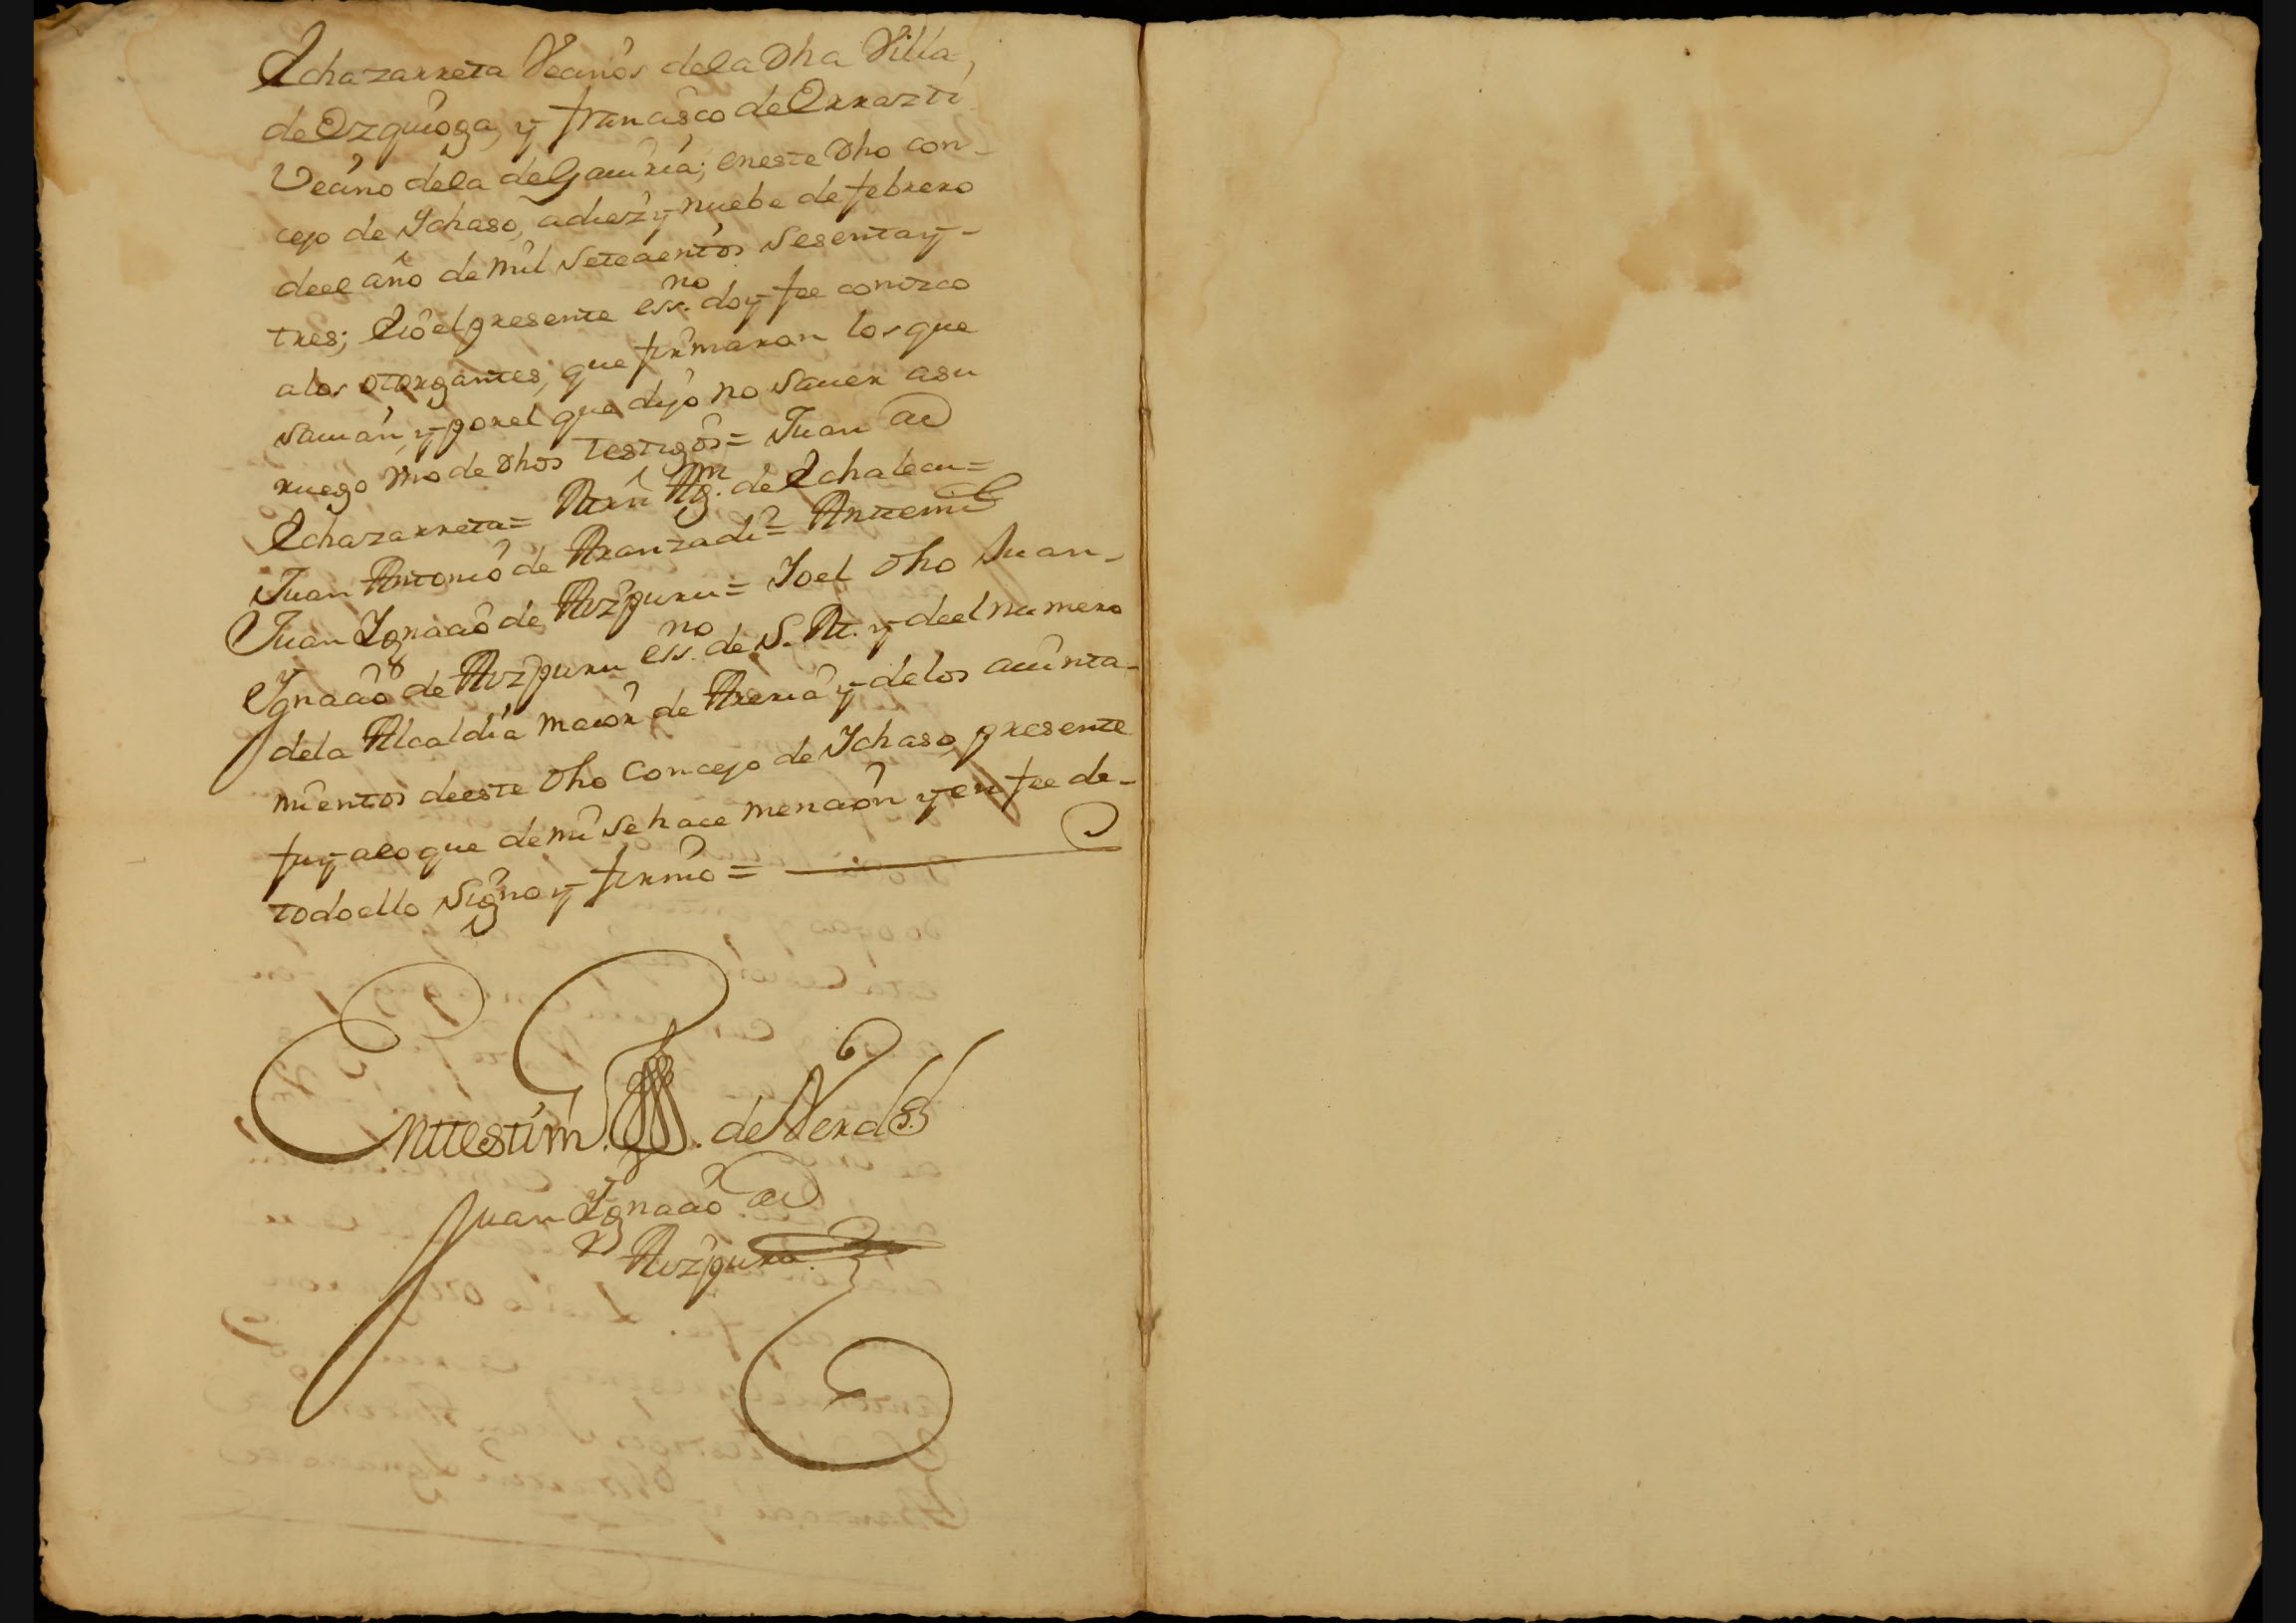 Echazarreta Vecinos dela Dha Villa,
de Ezquioga, y francisco de Errazti
Vecino dela de Gauiria; eneste Dho con-
cejo de Ychaso, adiez y nuebe de febrero
deel año de mil Setecientos Sesentay-
tres; Eio el presente essno. doy fee conozco
alos otorgantes, que firmaron los que
sauian, y por el que dijo no Sauer asu
ruego Vno de Dhos Testigos = Juan de
Echazarreta = Agm. de Echalecu =
Juan Antonio de Aranzadi = Anttemi
Juan Ygnacio de Aizpuru = Yo el Dho Juan-
Ygnacio de Aizpuru essno. de S. M. y deel numero
dela Alcaldia maior de Areria y delos aiunta-
mientos deeste Dho Concejo de Ychaso, presente
fuy alo que de mi Se hace mencion y en fee de-
todo ello Signo y firmo =
Enttestim. de Verd
Juan Ygnacio de
Aizpuru